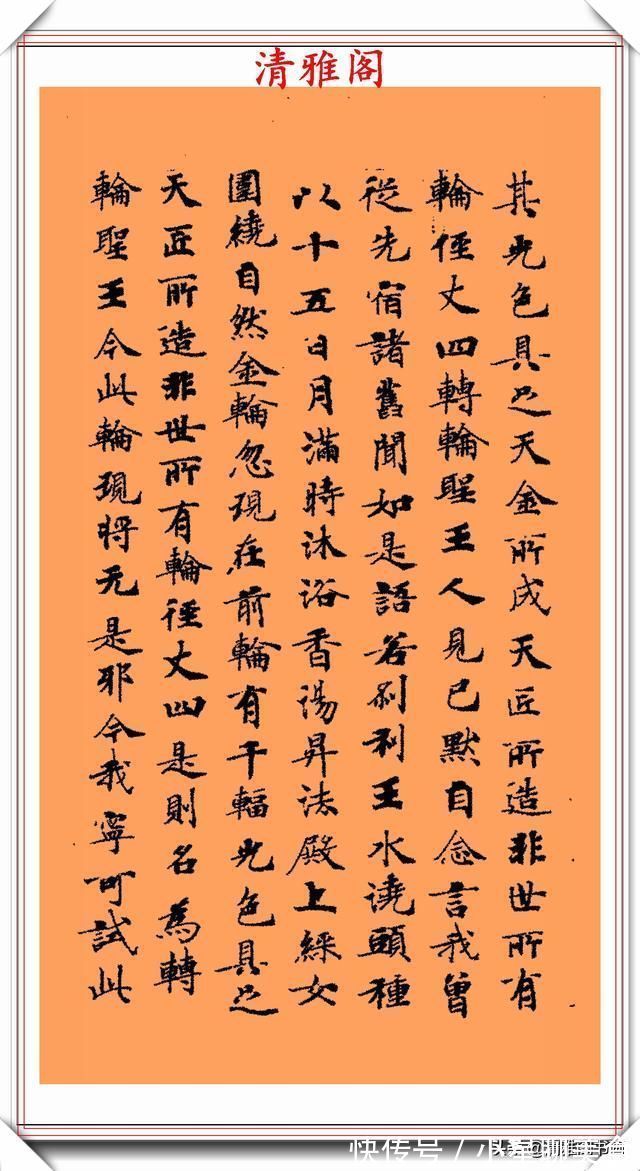 清雅阁
其光色具足天金所成天匠所造非世所有
輪径丈四轉輪聖王人見已默自念言我曾
從先宿諸舊聞如是語若刹利王水澆頭種
以十五日月滿時沐浴香湯昇法殿上綵女
圍繞自然金輪忽現在前輪有千輻光色具足
天匠所造非世所有輪徑丈四是則名為轉
輪聖王今此輪現將无是耶今我寧可試此
快传号 /